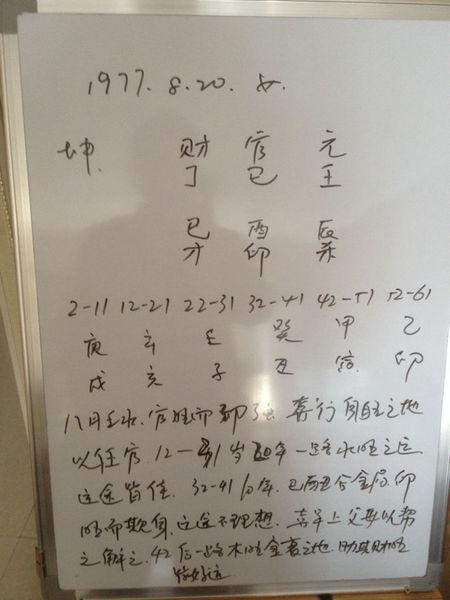 1977. 8.20. 女.
坤. 财 官 元
丁 己 壬
巳 酉 辰
才 印 杀
2-11 12-21 22-31 32-41 42-51 52-61
庚 辛 壬 癸 甲 乙
戌 亥 子 丑 寅 卯
八月壬水. 官旺而印强 喜行自旺之地
以任官. 12-41岁 年一路水旺之运
运途皆佳. 32-41 10年. 巳酉丑合金局. 印
旺而欺身. 运途不理想. 喜年上父母以帮
之解之. 42后一路木旺金衰之地. 助其财旺
好运